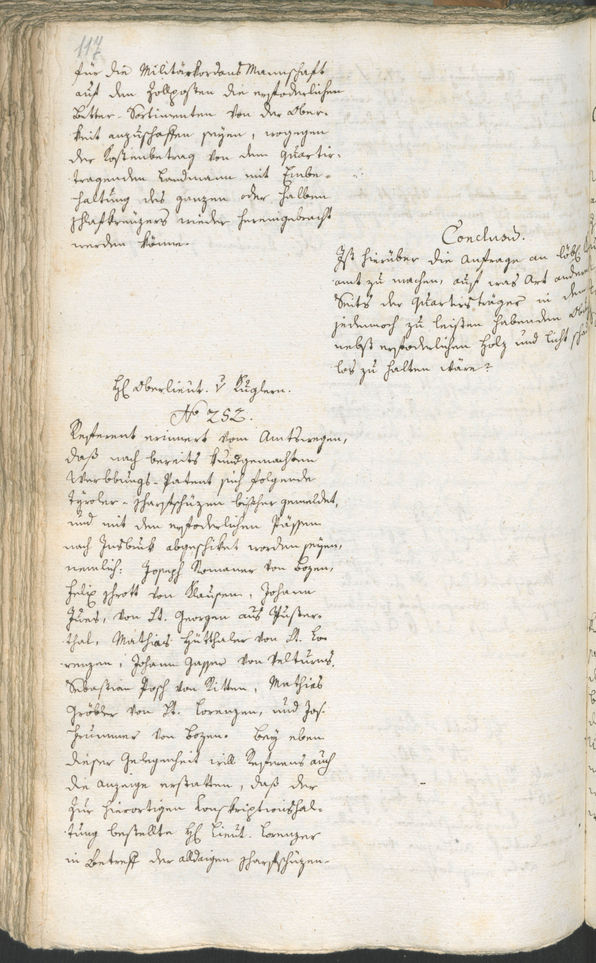 117
für die Militärkordons Mannschaft
auf den Zollposten die erfoderlichen
Better-Sortimenten von der Ober-
keit anzuschaffen seyen, wogegen
der Kostenbetrag von dem Quartir-
tragenden Landmann mit Einbe-
haltung des ganzen oder halben
Schlafkreuzers wieder hereingebracht
werden könne.
Conclusum.
Ist hierüber die Anfrage an löbl.
amt zu machen, auf was Art
Seits der Quartiersträger in
jedennoch zu leisten habenden
nebst erfoderlichen Holz und Licht
los zu halten wäre?
H. Oberlieut. v Kuglern.
No 252.
Referent erinnert vom Amtswegen,
daß nach bereits kundgemachtem
Werbbungs-Patent sich folgende
Tyroler-Scharfschüzen bisher gemeldet,
und mit den erfoderlichen Pässen
nach Insbruk abgeschiket worden seyen,
nemlich: Joseph Romaner von Bozen,
Felix Schrott von Klausen, Johann
von St. Georgen aus Puster-
thal, Mathias Hütthaler von St. Lo-
renzen, Johann Gasser von Velturns,
Sebastian Posch von Ritten, Mathias
Gröbler von St. Lorenzen, und Jos.
von Bozen. Bey eben
dieser Gelegenheit will Referens auch
die Anzeige erstatten, daß der
zur hierortigen Konskriptionshal-
tung bestellte H. Lieut. Lorenzer
in Betreff der alldaigen Scharfschüzen-